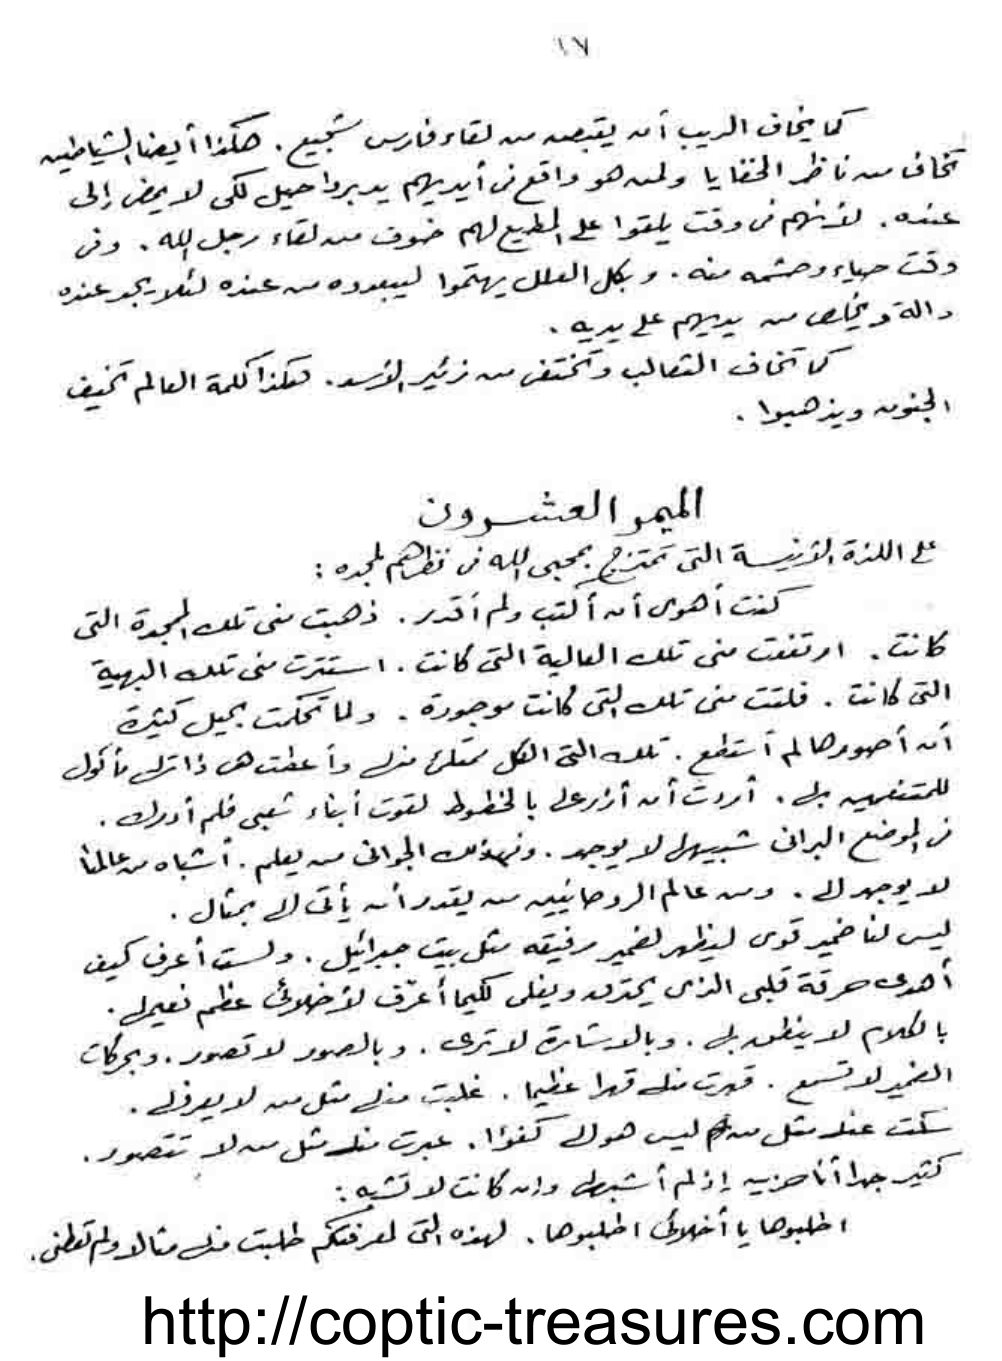 ٦٧
كما يخاف الديب أن يقبض من لقاء فارس شجيع. هكذا أيضا الشياطين
تخاف من ناظر الخفايا ولمن هو واقع في أيديهم يدبروا حيل لكي لا يمضي إلى
عنده. لأنهم في وقت يلقوا على المطيع لهم خوف من لقاء رجل الله. وفي
وقت حياء وحشمه منه. وبكل العلل يهتموا ليبعدوه من عنده لئلا يجد عنده
دالة ويخلص من يديهم على يديه.
كما تخاف الثعالب وتختفى من زئير الأسد. هكذا كلمة العالم تخيف
الجنون ويذهبوا.
الميمر العشرون
على اللذة الأنيسة التى تمتزج بمحبى الله في نظرهم لمجده:
كنت أهوى أن أكتب ولم أقدر. ذهبت منى تلك الممجدة التى
كانت. ارتفعت منى تلك العالية التى كانت. استترت منى تلك البهية
التى كانت. فلتت منى تلك التى كانت موجودة. ولما تحكمت بحيل كثيرة
أن أصورها لم أستطع. تلك التى الكل ممتلئ منها وأعطت هى ذاتها مأكول
للمتنعمين بها. أردت أن أزرعها بالخطوط لقوت أبناء شعبى فلم أدرك.
في الموضع البرانى شبيهها لا يوجد. وفى ذلك الجوانى من يعلم. أشباه من عالمنا
لا يوجد لها. ومن عالم الروحانيين من يقدر أن يأتى لها بمثال.
ليس لنا ضمير قوى ليظهر لضمير رفيقه مثل بيت جبرائيل. ولست أعرف كيف
أهدى حرقة قلبى الذى يحترق ويغلى لكيما أعرّف لأخلائى عظم نعيمها.
بالكلام لا ينطق بها. وبالاشارة لا ترى. وبالصور لا تصور. وبحركات
الضمير لا تسمع. قهرت منها قهرا عظيما. غلبت منها مثل من لا يعرفها.
سكت عنها مثل من ليس هو لها كفؤا. عبرت منها مثل من لا تتصور.
كثير جدا أنا حزين إذ لم أشبهها وان كانت لا تشبه:
اطلبوها يا أخلائى اطلبوها. لهذه التى لمعرفتكم طلبت منها مثالا ولم تعطنى.
http://coptic-treasures.com